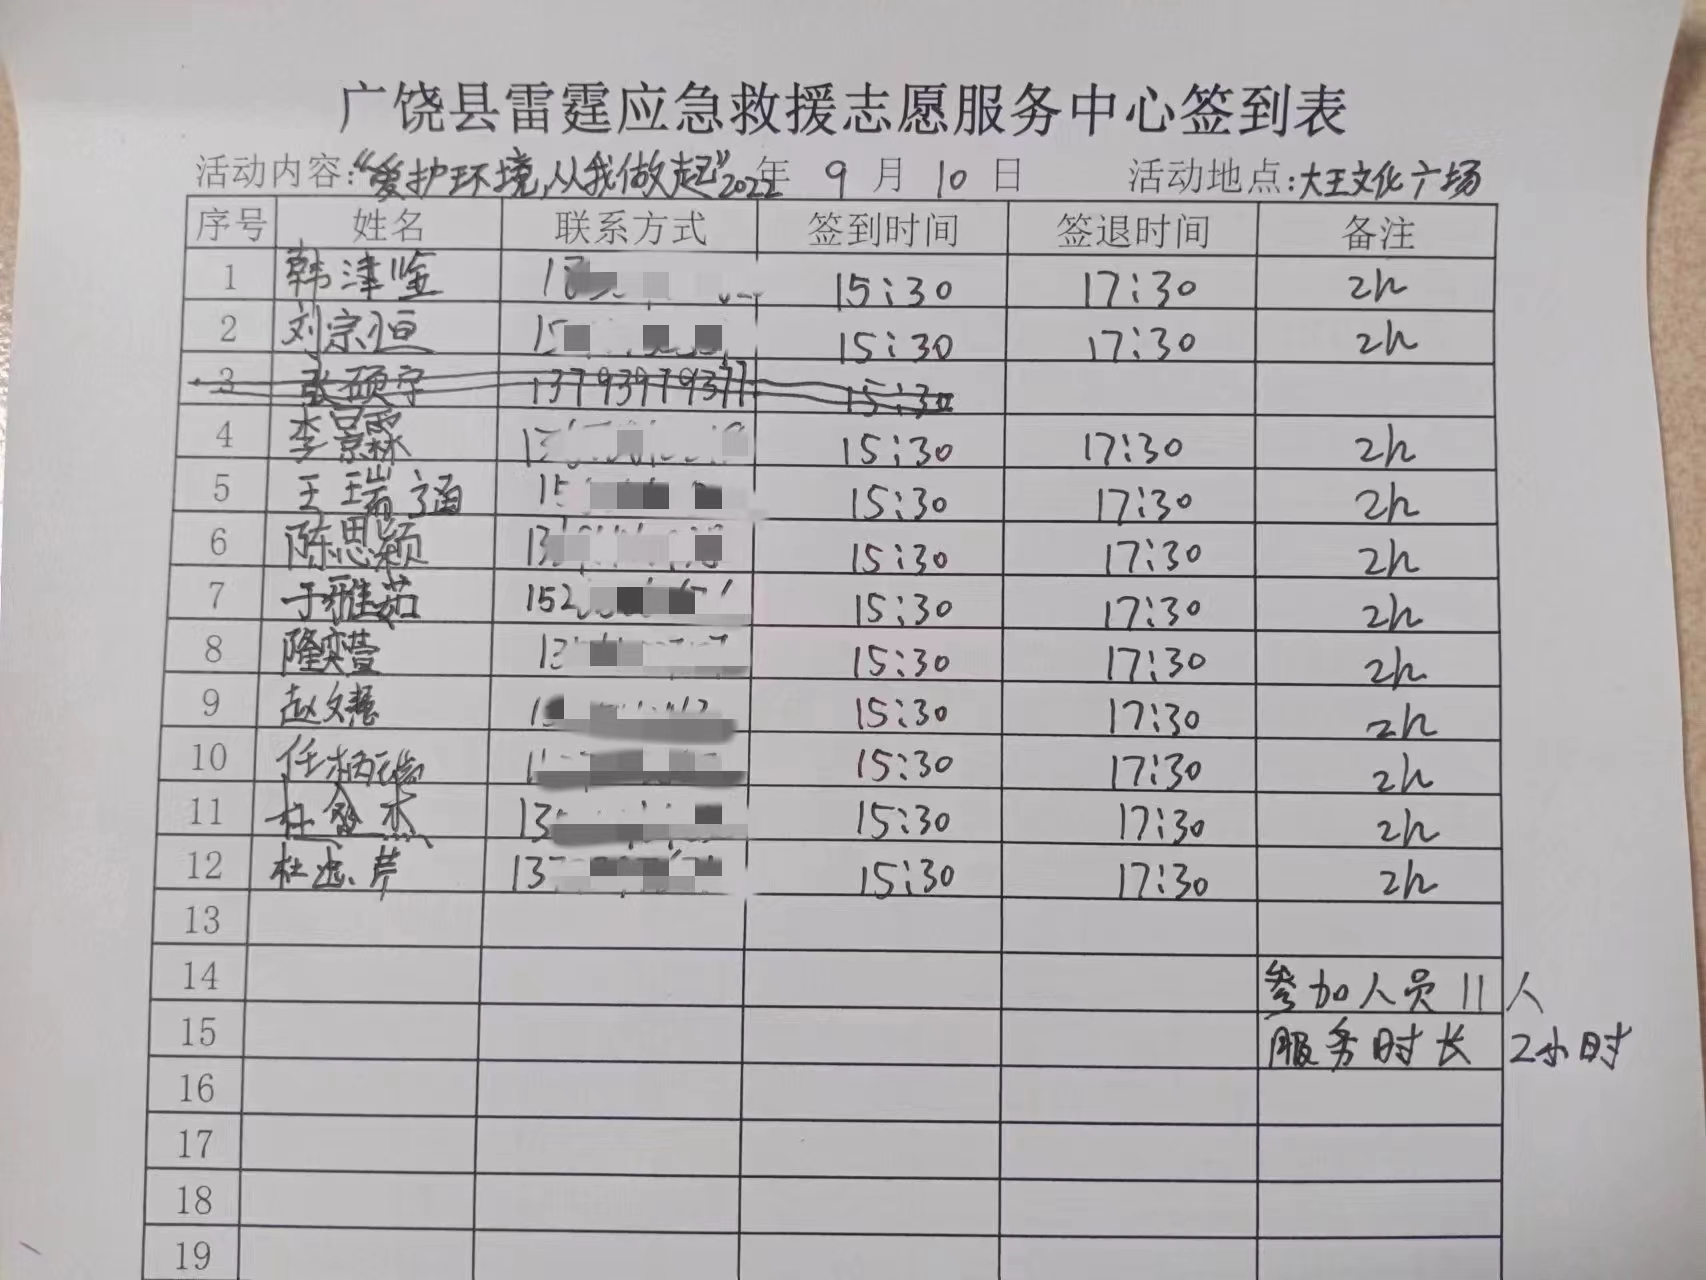 广饶县雷霆应急救援志愿服务中心签到表
活动内容:“爱护环境,从我做起”2022年 9 月 10 日 活动地点:大王文化广场
序号 姓名 联系方式 签到时间 签退时间 备注
1 韩津鉴 15:30 17:30 2h
2 刘宗恒 15:30 17:30 2h
3 张硕宇 13793979377 15:30
4 李 15:30 17:30 2h
5 王瑞涵 15:30 17:30 2h
6 陈思颖 15:30 17:30 2h
7 于雅茹 152 15:30 17:30 2h
8 隆奕萱 15:30 17:30 2h
9 赵文慧 15:30 17:30 2h
10 任柄 15:30 17:30 2h
11 杜 杰 13 15:30 17:30 2h
12 杜 芹 13 15:30 17:30 2h
13
14 参加人员11人
15 服务时长 2小时
16
17
18
19